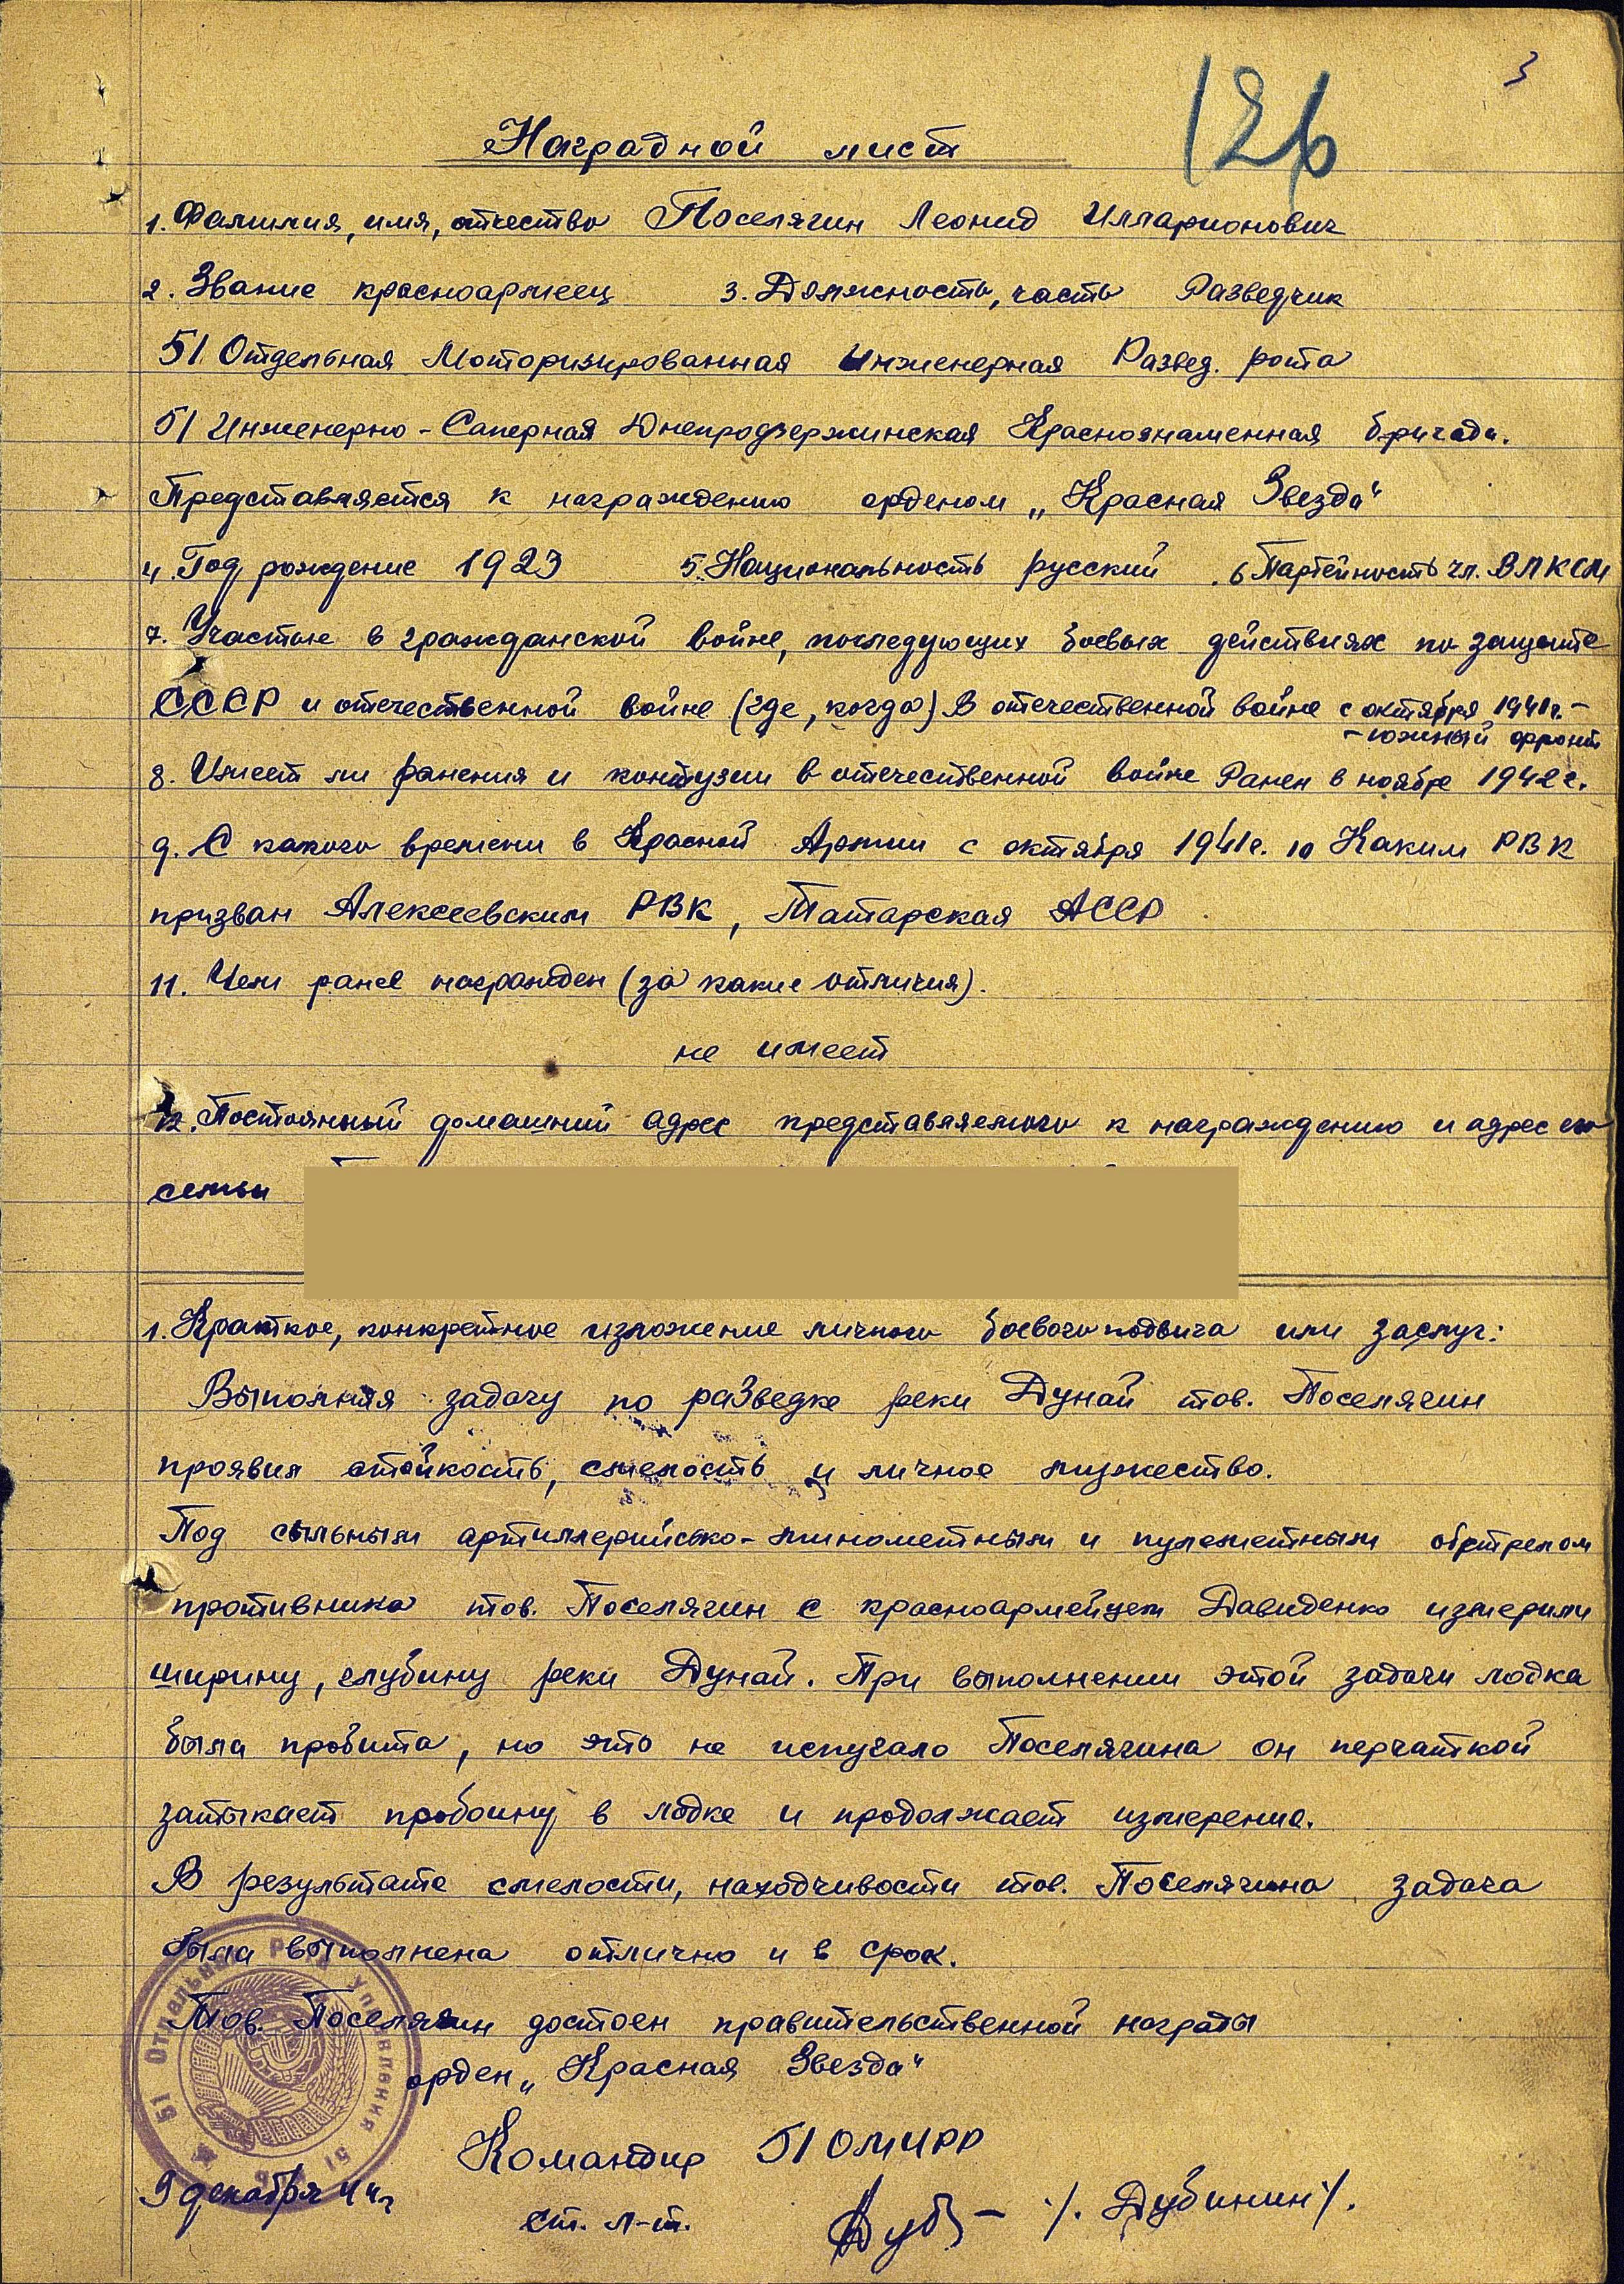 3
126
Наградной лист
1. Фамилия, имя, отчество Поселягин Леонид Илларионович
2. Звание красноармеец 3. Должность, часть Разведчик
51 Отдельная Моторизированная Инженерная Развед. рота
51 Инженерно-Саперная Днепродзержинская Краснознаменная бригада.
Представляется к награждению орденом „Красная Звезда"
4. Год рождение 1923 5. Национальность русский. 6 Партейность чл. ВЛКСМ
7. Участие в гражданской войне, последующих боевых действиях по защите
СССР и отечественной войне (где, когда) В отечественной войне с октября 1941г.-
- южный фронт
8. Имеет ли ранения и контузии в отечественной войне Ранен в ноябре 1942 г.
9. С какого времени в Красной Армии с октября 1941г. 10 Каким РВК
призван Алексеевским РВК, Татарская АССР
11. Чем ранее награжден (за какие отличия).
не имеет
12. Постоянный домашний адрес представляемого к награждению и адрес его
семьи
1. Краткое, конкретное изложение личного боевого подвига или заслуг:
Выполняя задачу по разведке реки Дунай тов. Поселягин
проявил стойкость, смелость и личное мужество.
Под сыльным артиллерийско-минометным и пулеметным обстрелом
противника тов. Поселягин с красноармейцем Давиденко измерили
ширину, глубину реки Дунай. При выполнении этой задачи лодка
была пробита, но это не испугало Поселягина он перчаткой
затыкает пробоину в лодке и продолжает измерение.
В результате смелости, находчивости тов. Поселягина задача
была выполнена отлично и в срок.
Тов. Поселягин достоен правительственной награды
орден „Красная Звезда"
Командир 51 ОМИРР
9 декабря 44г
ст. л-т. Дуб /. Дубинин /.
51 Отдельная Рота Управления 51